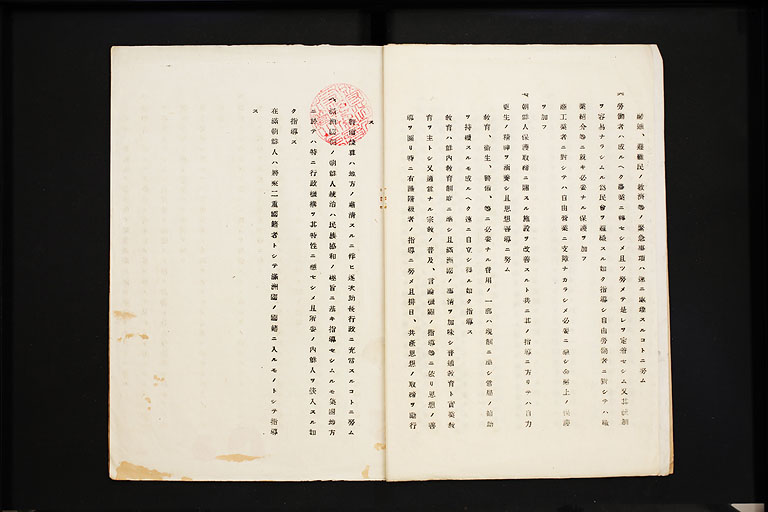 歸還、避難民ノ救濟等ノ緊急事項ハ速ニ處理スルコトニ努ム
勞働者ハ成ルヘク農業ニ轉セシメ且ツ努メテ是レヲ定着セシム又其統制
ヲ容易ナラシムル爲民會ヲ組織スル如ク指導シ自由勞働者ニ對シテハ職
業紹介等ニ就キ必要ナル保護ヲ加フ
商工業者ニ對シテハ自由營業ニ支障ナカラシメ必要ニ應シ金融上ノ保護
ヲ加フ
朝鮮人保護取締ニ關スル施設ヲ改善スルト共ニ其ノ指導ニ方リテハ自力
更生ノ精神ヲ涵養シ且思想善導ニ努ム
教育、衞生、醫術、等ニ必要ナル費用ノ一部ハ現制ニ準シ當局ノ補助
ヲ持續スルモ成ルヘク速ニ自立シ得ル如ク指導ス
教育ハ鮮內教育制度ニ準シ且滿洲國ノ事情ヲ加味シ普通教育ト實業教
育ヲ主トシ又適當ナル宗教ノ普及、言論機關ノ指導等ニ依リ思想ノ善
導ヲ圖リ特ニ有識階級者ノ指導ニ努メ且排日、共產思想ノ取締ヲ勵行
ス
ハ地方ノ肅淸スルニ伴ヒ逐次助長行政ニ充當スルコトニ努ム
滿洲國ノ朝鮮人統治ハ民族協和ノ趣旨ニ基キ指導セシムルモ集團地方
ニ於テハ特ニ行政機構ヲ其特性ニ應セシメ且所要ノ內鮮人ヲ張入スル如
ク指導ス
在滿朝鮮人ハ將來二重國籍者トシテ滿洲國ノ國籍ニ入ルモノトシテ指導
ス